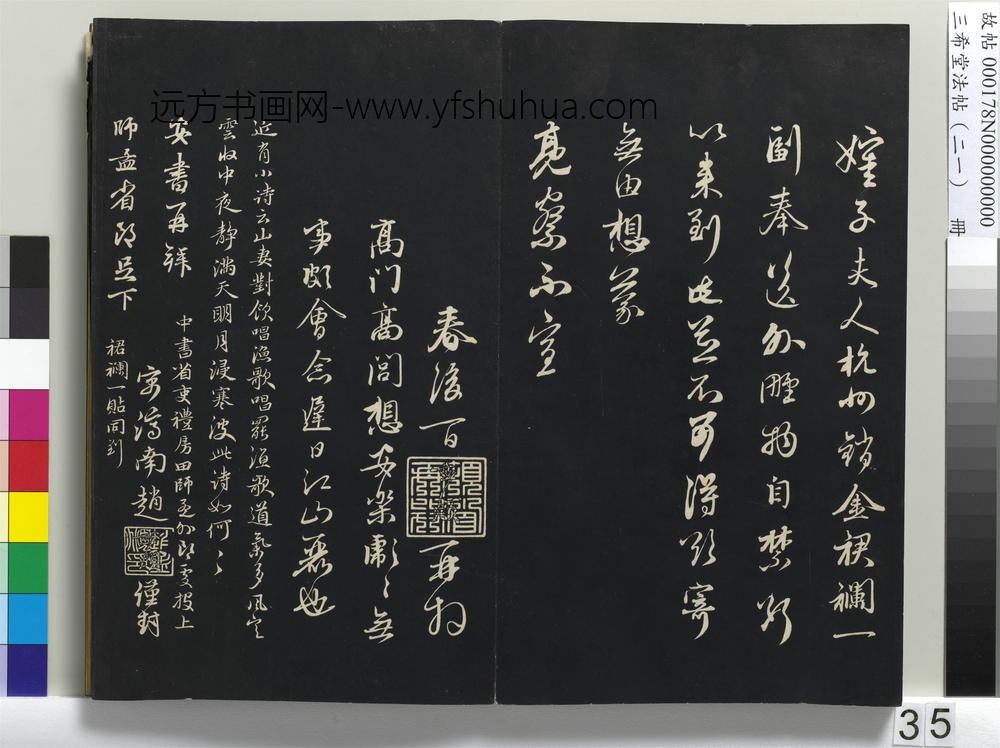 嬸子夫人杭州銷金裙襴一
副奉送外野物自禁夠
以来到此並不可得欲寄
無由想蒙
亮察不宣
春後百
再拜
高门高閭想安樂彫彫無
事頗會念遲日江山麗也
近有小诗云山妻對飲唱漁歌唱罷漁歌道氣多風定
雲收中夜靜滿天明月浸寒波此詩如何〻
安書再拜 中書省吏禮房田師孟外郎處投上
寓濟南趙 謹封
師孟省郎足下 裙襴一貼同到
远方书画网-www.yfshuhua.com
故帖 000178N000000000
三希堂法帖（二一） 冊
35